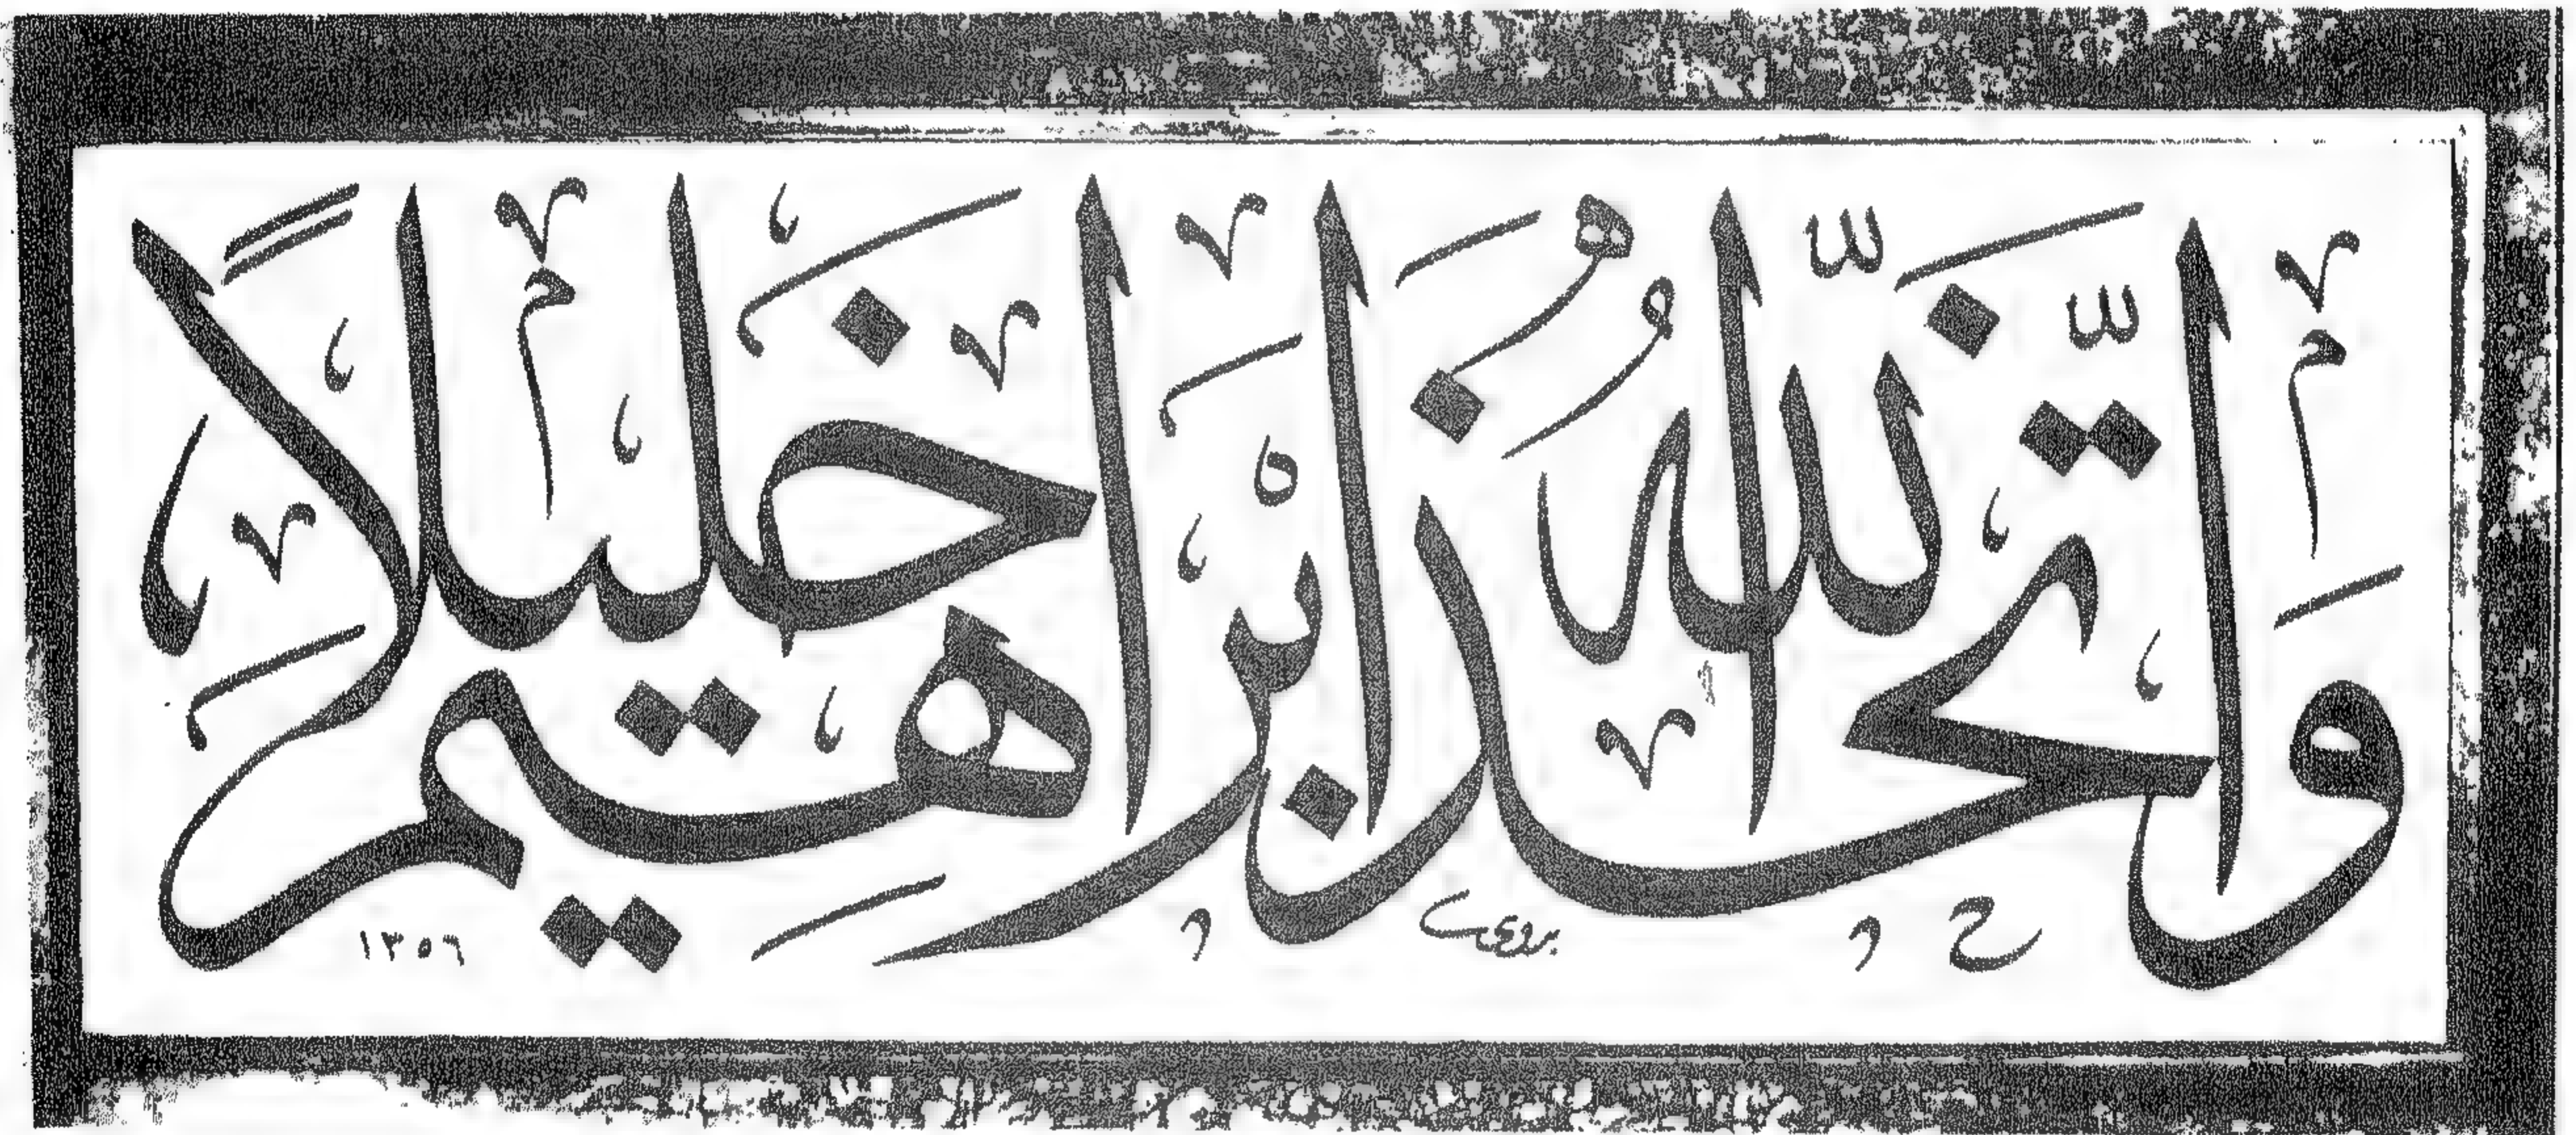 وَاتَّخَذَ اللّٰهُ اِبْرَاهِيمَ خَلِيلًا
١٣٥٦